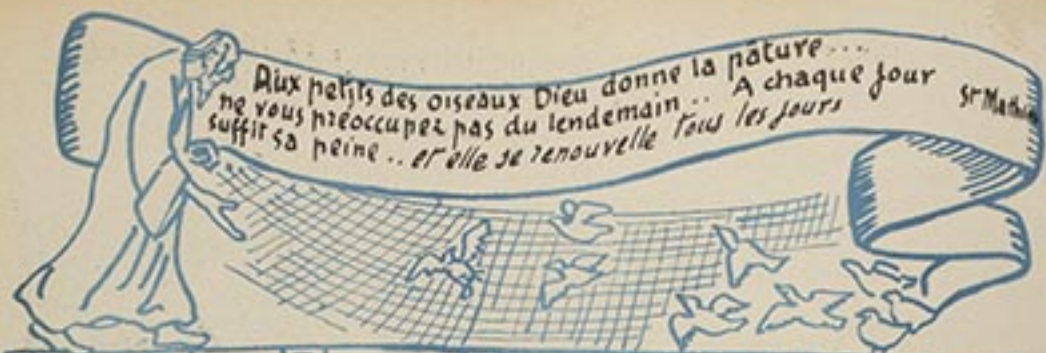 Aux petits des oiseaux Dieu donne la pâture...
ne vous préoccupez pas du lendemain.. A chaque jour
suffit sa peine.. et elle se renouvelle tous les jours
St Mathieu